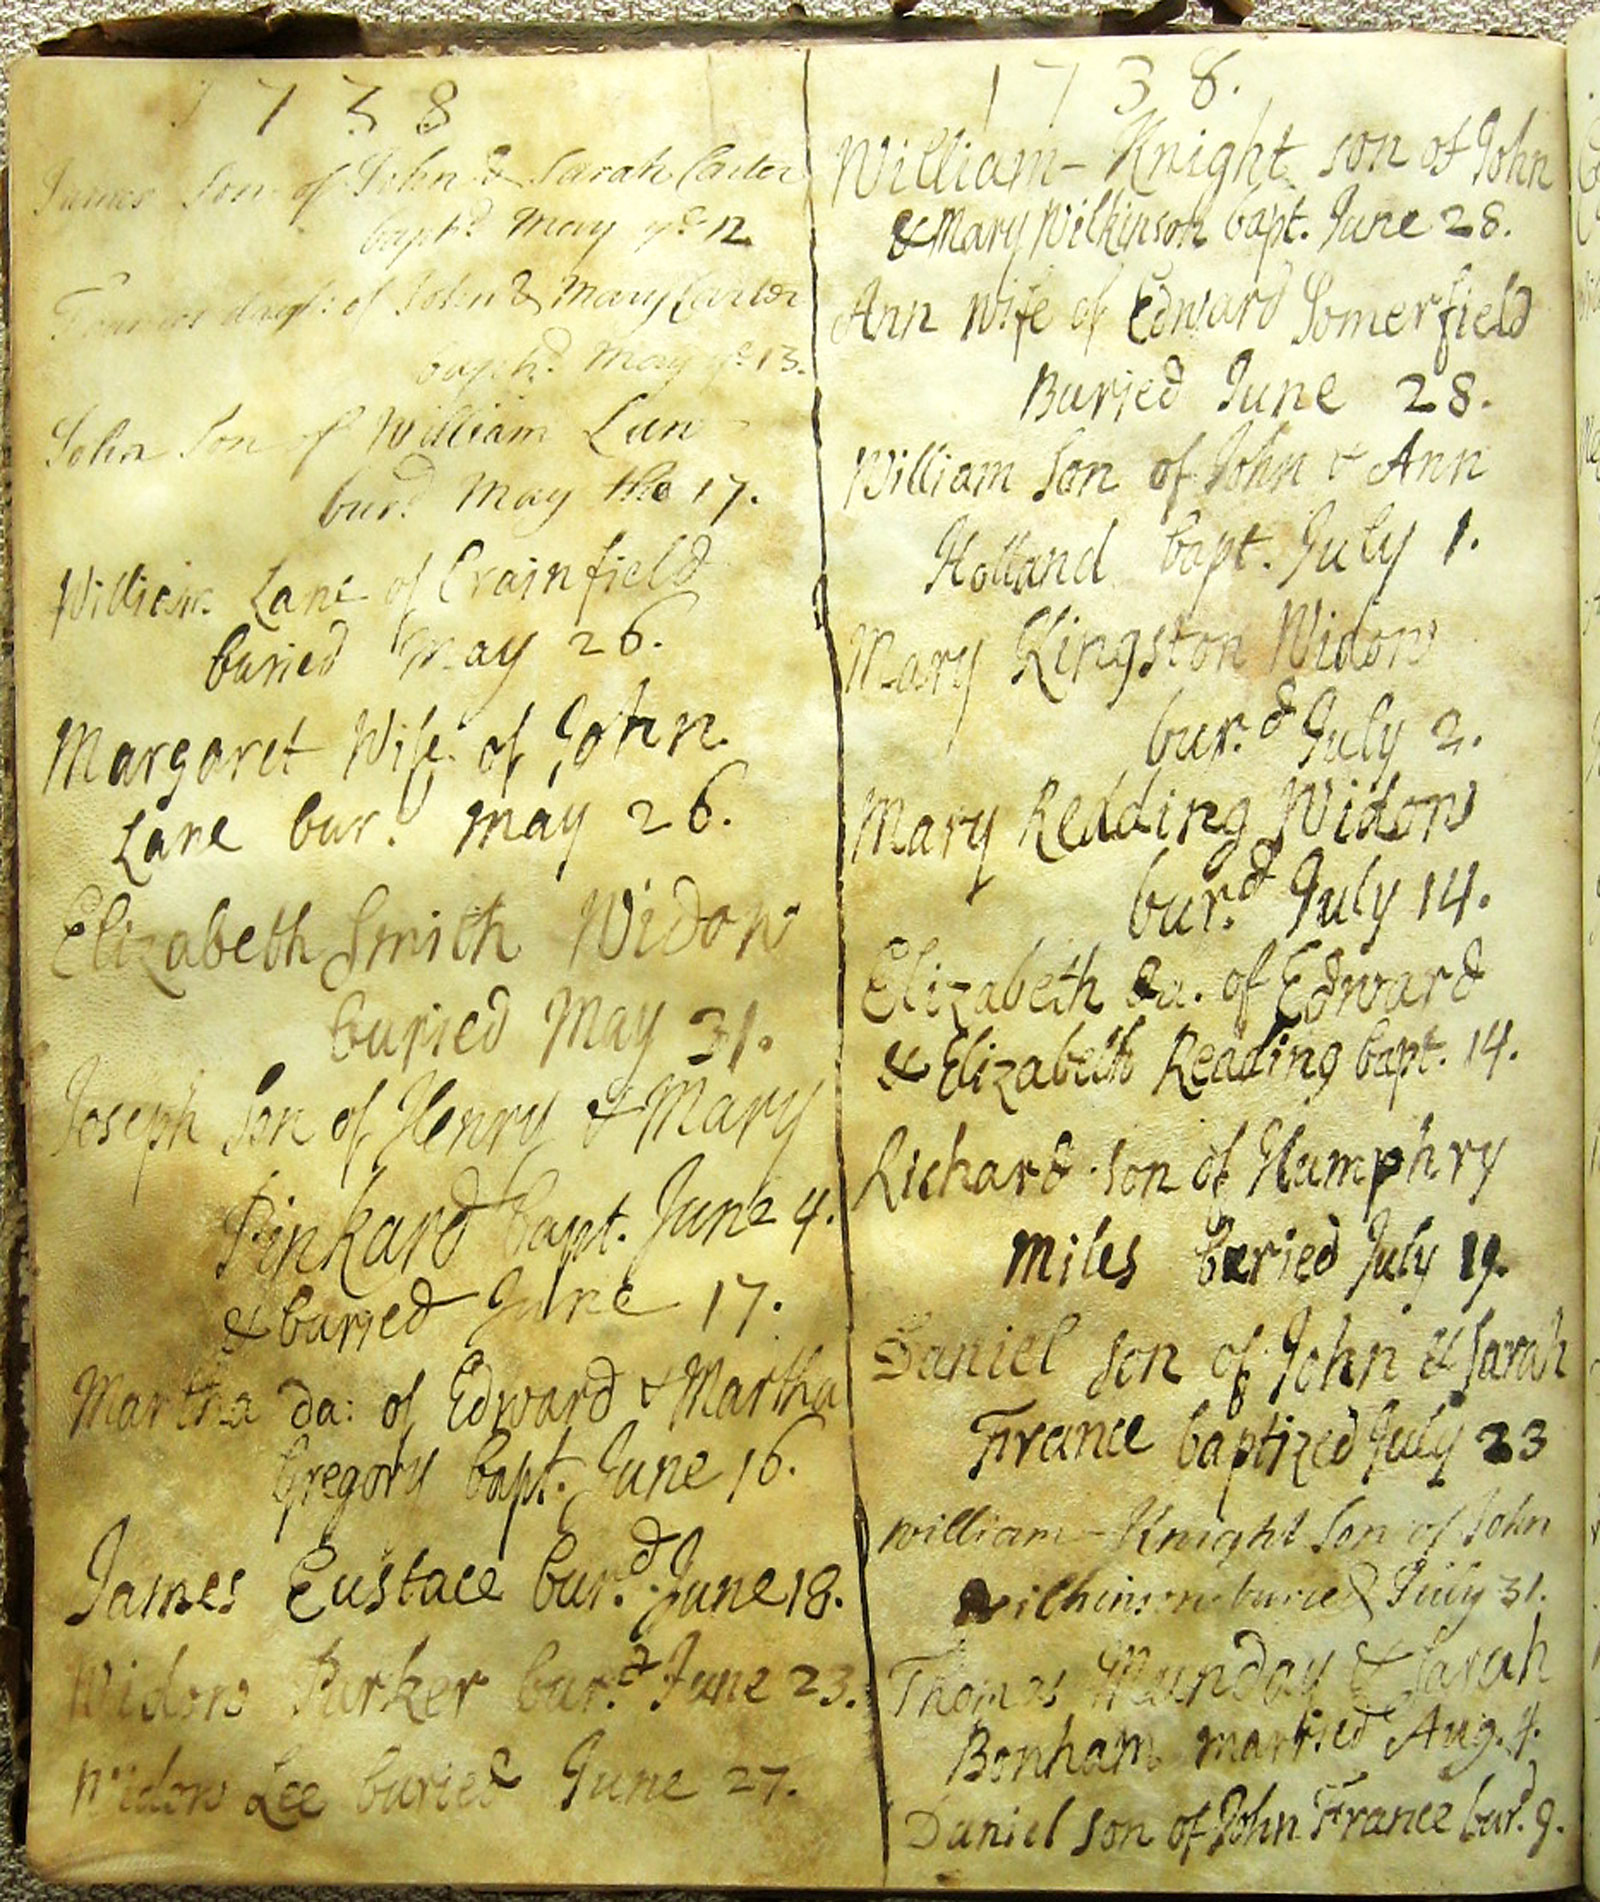 1738
James Son of John & Sarah Carter
bapt.d May ye 12
Frances daught: of John & Mary Carter
bapt.d May ye 13.
John Son of William Lun
bur.d May the 17.
William Lane of Crainfield
buried May 26.
Margaret Wife of John
Lane bur.d May 26.
Elizabeth Smith Widow
buried May 31.
Joseph Son of Henry & Mary
Pinkard bapt. June 4.
& buried June 17.
Martha da: of Edward & Martha
Gregory bapt. June 16.
James Eustace bur.d June 18.
Widow Parker bur.d June 23.
Widow Lee buried June 27.
1738.
William-Knight son of John
& Mary Wilkinson bapt. June 28.
Ann wife of Edward Somerfield
Buried June 28.
William Son of John & Ann
Holland bapt. July 1.
Mary Kingston Widow
bur.d July 2.
Mary Redding Widow
bur.d July 14.
Elizabeth da. of Edward
& Elizabeth Reading bapt. 14.
Richard son of Humphry
Miles buried July 19.
Daniel son of John & Sarah
France baptized July 23
William-Knight Son of John
Wilkinson buried July 31.
Thomas Munday & Sarah
Bonham married Aug. 4.
Daniel son of John France bur.d 9.